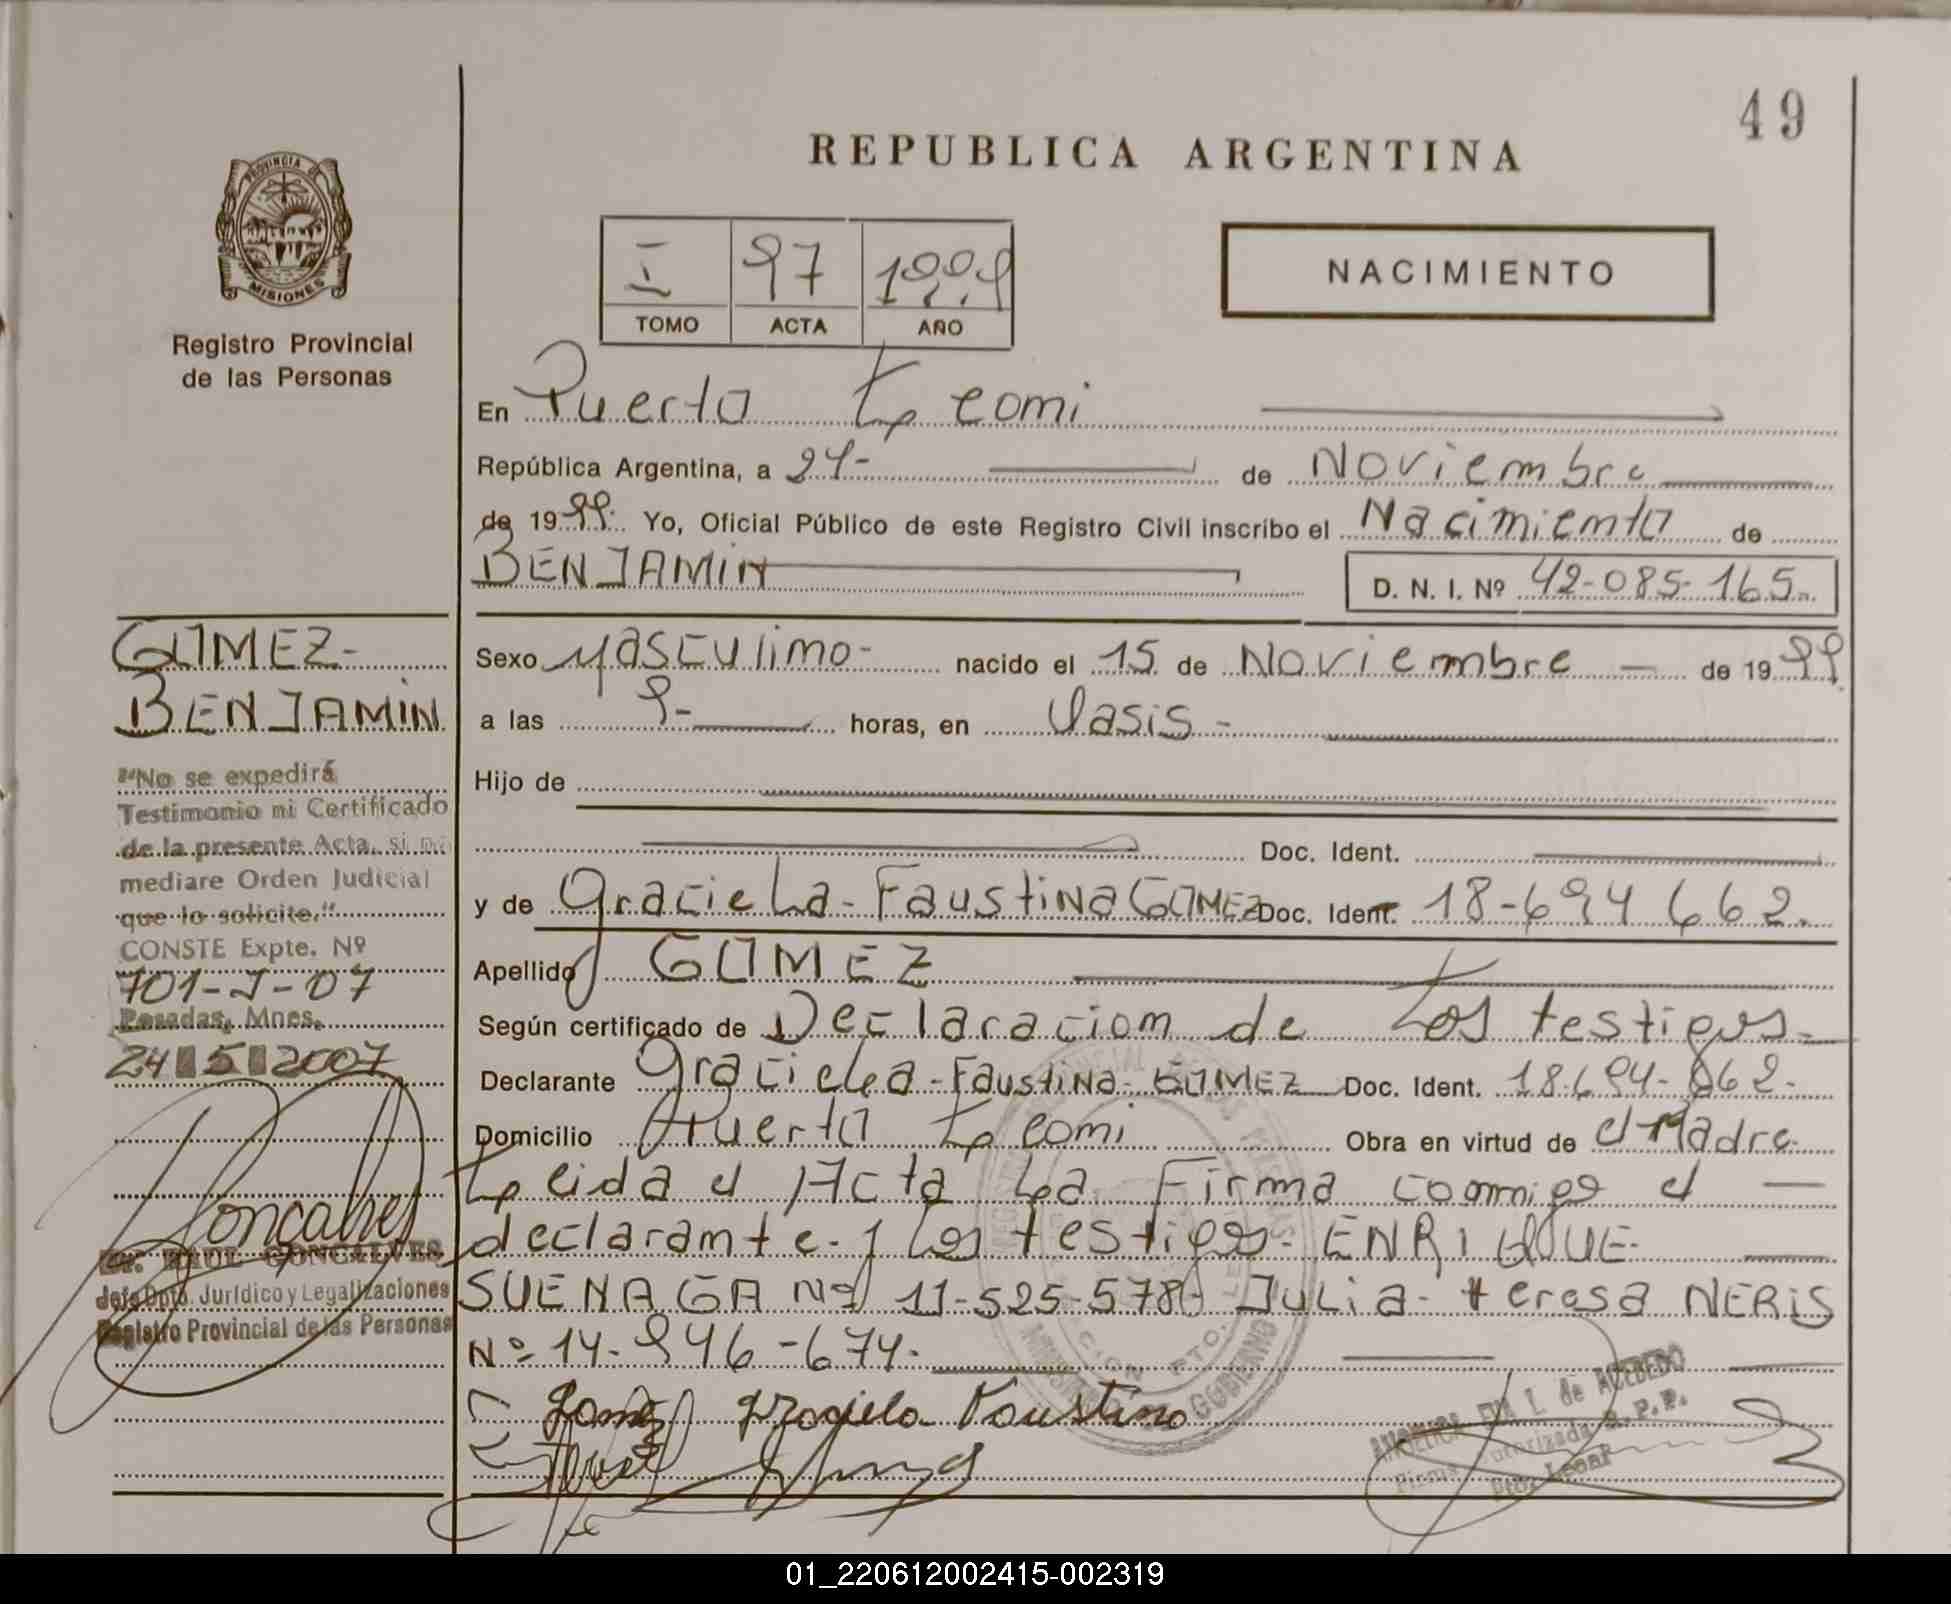 49
REPUBLICA ARGENTINA
PROVINCIA DE
MISIONES
Registro Provincial
de las Personas
I 97 1999
TOMO ACTA AÑO
NACIMIENTO
En Puerto Leoni
República Argentina, a 24- de Noviembre
de 1999. Yo, Oficial Público de este Registro Civil inscribo el Nacimiento de
BENJAMIN D. N. I. Nº 42-085-165.
GOMEZ-
BENJAMIN
"No se expedirá
Testimonio ni Certificado
de la presente Acta, si no
mediare Orden Judicial
que lo solicite."
CONSTE Expte. Nº
701-J-07
Posadas, Mnes.
24 5 2007
Goncalves
Dr. RAUL GONCALVES
Jefe Dpto. Jurídico y Legalizaciones
Registro Provincial de las Personas
Sexo Masculino- nacido el 15 de Noviembre de 1999
a las 9- horas, en Oasis-
Hijo de
Doc. Ident.
y de Graciela-Faustina GOMEZ Doc. Ident. 18-694 662.
Apellido GOMEZ
Según certificado de Declaracion de Los testigos-
Declarante Graciela-Faustina-GOMEZ Doc. Ident. 18.694-662-
Domicilio Puerto Leoni Obra en virtud de el Madre.
Leida el Acta La Firma conmigo el
declarante y Los testigos- ENRIQUE-
SUENAGA Nº 11-525-578- Julia-teresa NERIS
Nº-14-946-674-
Gomez graciela Faustina
ANGELICA L. de ACEBEDO
Firma Autorizada R.P.P.
Pto. Leoni
01_220612002415-002319